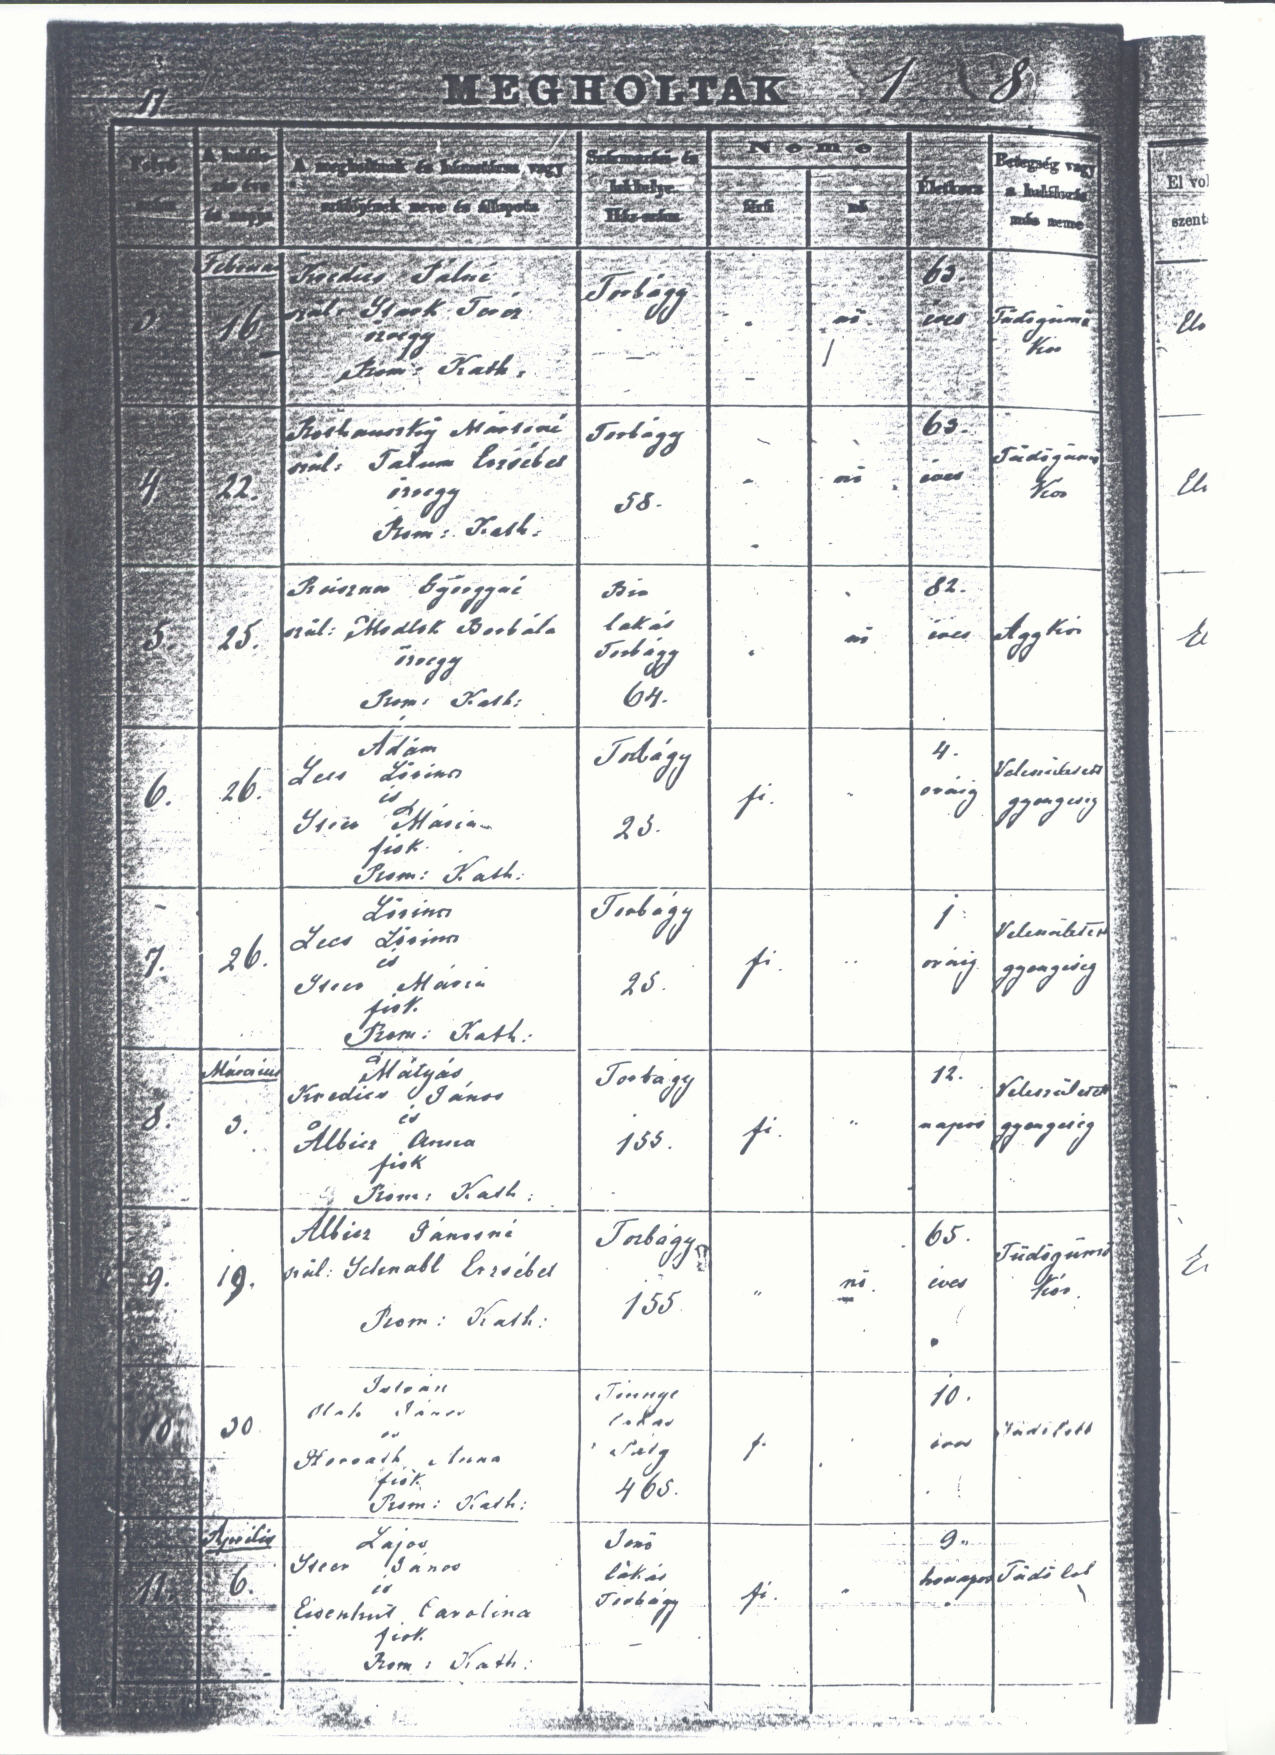 17.
MEGHOLTAK 1 8
Folyó szám
A halálozás éve és napja
A megholtnak és házastársa vagy szülőjének neve és állapota
Származás és lakhelye. Ház-szám.
Neme
férfi
nő
Életkora
Betegség vagy a halálozás más neme
El vol
szent
Februa
3. 16
Kredics Pálné
szül: Stark Teréz
özvegy
Rom: Kath:
Torbágy
nő
63.
éves
Tüdőgümő
Kór
Els
4 22.
szül: Erzsébet
özvegy
Rom: Kath:
Torbágy
58.
nő
63.
éves
Tüdőgümő
Kór
Els
5. 25.
Györgyné
szül: Borbála
özvegy
Rom: Kath:
Bia
lakás
Torbágy
64.
nő
82.
éves
Aggkór
El
6. 26.
Ádám
Lecs Lőrincz
és
Mária
fiok
Rom: Kath:
Torbágy
25.
fi.
4.
óráig
Veleszületett
gyengeség
7. 26.
Lőrincz
Lecs Lőrincz
és
Mária
fiok.
Rom: Kath:
Torbágy
25.
fi.
1
óráig
Veleszületett
gyengeség
Márczius
8. 3.
Mátyás
Kredics János
és
Albicz Anna
fiok
Rom: Kath:
Torbágy
155.
fi.
"
12.
napos
Veleszületett
gyengeség
9. 19.
Albicz Jánosné
szül: Schnabl Erzsébet
Rom: Kath:
Torbágy
155
"
nő.
65.
éves
Tüdőgümő
Kór.
10. 30
István
János
és
Horvath Anna
fiok
Rom: Kath:
Tinnye
lakás
465.
f.
10.
éves
Április
11. 6.
Lajos
János
és
Eisenhut Carolina
fiok.
Rom: Kath:
Jenő
lakás
Torbágy
fi.
"
9"
honapos
Tüdő lob